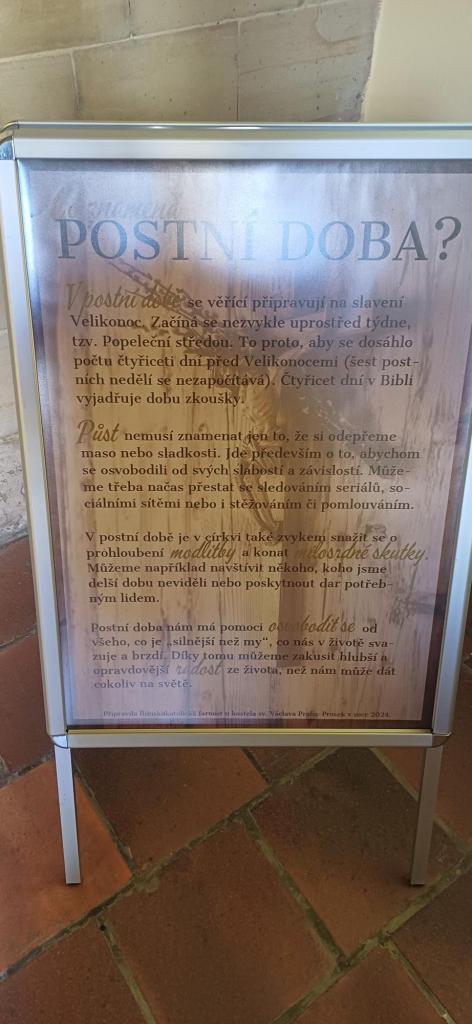 Co znamená
POSTNÍ DOBA?
V postní době se věřící připravují na slavení
Velikonoc. Začíná se nezvykle uprostřed týdne,
tzv. Popeleční středou. To proto, aby se dosáhlo
počtu čtyřiceti dní před Velikonocemi (šest post-
ních nedělí se nezapočítává). Čtyřicet dní v Bibli
vyjadřuje dobu zkoušky.
Půst nemusí znamenat jen to, že si odepřeme
maso nebo sladkosti. Jde především o to, abychom
se osvobodili od svých slabostí a závislostí. Může-
me třeba načas přestat se sledováním seriálů, so-
ciálními sítěmi nebo i stěžováním či pomlouváním.
V postní době je v církvi také zvykem snažit se o
prohloubení modlitby a konat milosrdné skutky.
Můžeme například navštívit někoho, koho jsme
delší dobu neviděli nebo poskytnout dar potřeb-
ným lidem.
Postní doba nám má pomoci osvobodit se od
všeho, co je „silnější než my“, co nás v životě sva-
zuje a brzdí. Díky tomu můžeme zakusit hlubší a
opravdovější radost ze života, než nám může dát
cokoliv na světě.
Připravila Římskokatolická farnost u kostela sv. Václava Praha-Prosek v roce 2024.